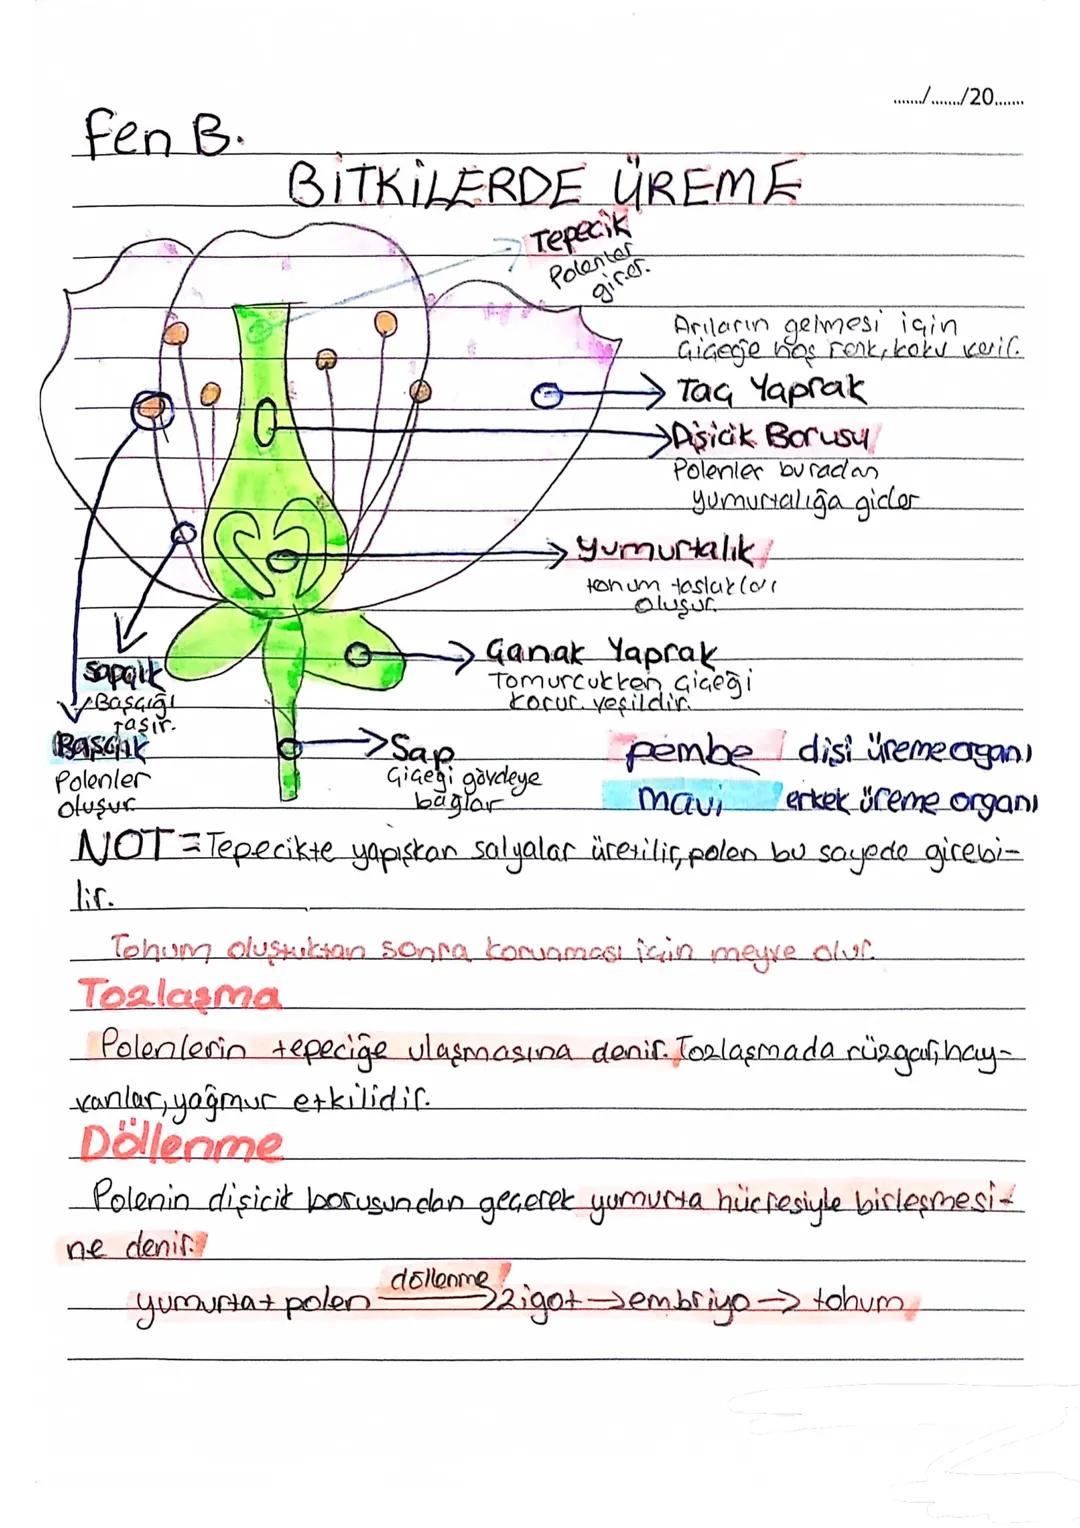 ......./......./20.......
Fen B.
BİTKİLERDE ÜREME
Tepecik
Polenler
girer.
Arıların gelmesi için
Çiçeğe hoş renk, koku verir.
Taç Yaprak
Dişicik Borusu
Polenler buradan
yumurtalığa gider
Yumurtalık
tohum taslakları
oluşur.
Çanak Yaprak
Tomurcukken çiçeği
korur. yeşildir.
Sapçık
Başçığı
taşır.
Başçık
Polenler
oluşur
Sap
Çiçeği gövdeye
bağlar
pembe dişi üreme organı
mavi erkek üreme organı
NOT = Tepecikte yapışkan salyalar üretilir, polen bu sayede girebi-
lir.
Tohum oluştuktan sonra korunması için meyve olur.
Tozlaşma
Polenlerin tepeciğe ulaşmasına denir. Tozlaşmada rüzgar, hay-
vanlar, yağmur etkilidir.
Döllenme
Polenin dişicik borusundan geçerek yumurta hücresiyle birleşmesi-
ne denir.
döllenme
yumurta + polen → zigot → embriyo → tohum